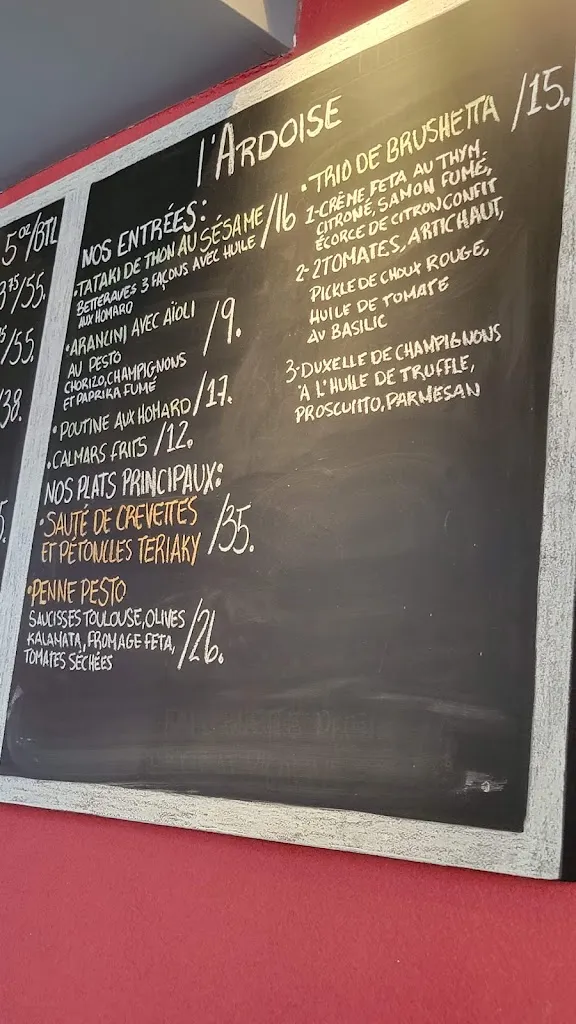 5oz/BTL
375/55.
/55.
/38.
l'ARDOISE
NOS ENTRÉES:
• TATAKI DE THON AU SÉSAME /16
BETTERAVES 3 FAÇONS AVEC HUILE
AUX HOMARD
• ARANCINI AVEC AÏOLI /9.
AU PESTO
CHORIZO, CHAMPIGNONS
ET PAPRIKA FUMÉ
• POUTINE AUX HOMARD /17.
• CALMARS FRITS /12.
NOS PLATS PRINCIPAUX:
• SAUTÉ DE CREVETTES
ET PÉTONCLES TERIAKY /35.
• PENNE PESTO
SAUCISSES TOULOUSE, OLIVES
KALAMATA, FROMAGE FETA, /26.
TOMATES SÉCHÉES
• TRIO DE BRUSHETTA /15.
1-CRÈME, FETA AU THYM.
CITRONÉ, SAMON FUMÉ,
ÉCORCE DE CITRON CONFIT
2-2TOMATES, ARTICHAUT,
PICKLE DE CHOUX ROUGE,
HUILE DE TOMATE
AU BASILIC
3-DUXELLE DE CHAMPIGNONS
À L'HUILE DE TRUFFLE,
PROSCUITTO, PARMESAN